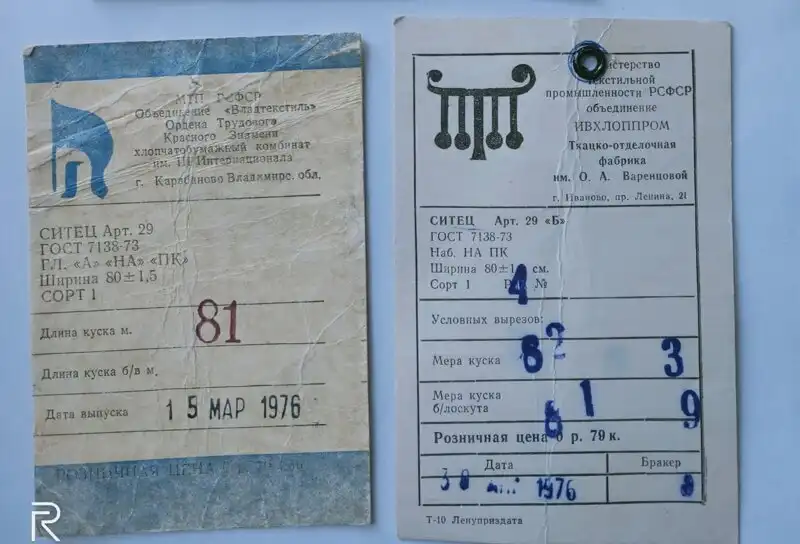 МТП РСФСР
Объединение «Владтекстиль»
Ордена Трудового
Красного Знамени
хлопчатобумажный комбинат
им. III Интернационала
г. Карабаново Владимирс. обл.
СИТЕЦ Арт. 29
ГОСТ 7138-73
ГЛ. «А» «НА» «ПК»
Ширина 80±1,5
СОРТ 1
Длина куска м. 81
Длина куска б/в м.
Дата выпуска 15 МАР 1976
РОЗНИЧНАЯ ЦЕНА
Министерство
текстильной
промышленности РСФСР
объединение
ИВХЛОППРОМ
Ткацко-отделочная
фабрика
им. О. А. Варенцовой
г. Иваново, пр. Ленина, 21
СИТЕЦ Арт. 29 «Б»
ГОСТ 7138-73
Наб. НА ПК
Ширина 80±1, см.
Сорт 1 4 №
Условных вырезов:
Мера куска 8 2 3
Мера куска 1
б/лоскута 8 9
Розничная цена 0 р. 79 к.
Дата Бракер
30 1976
Т-10 Ленуприздата
R